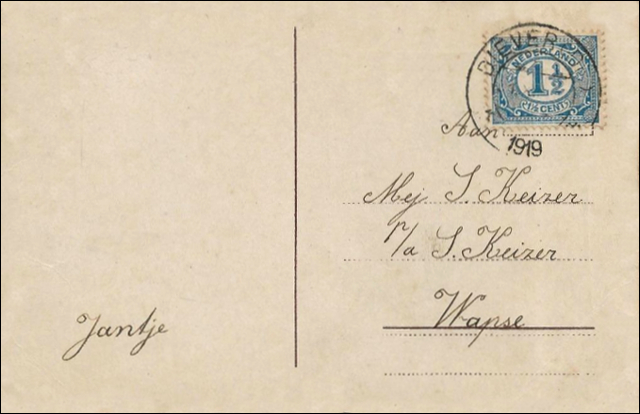 DIEVER
NEDERLAND
1½
1½ CENT
1919
Aan
Mej S. Keizer
p/a S. Keizer
Wapse
Jantje